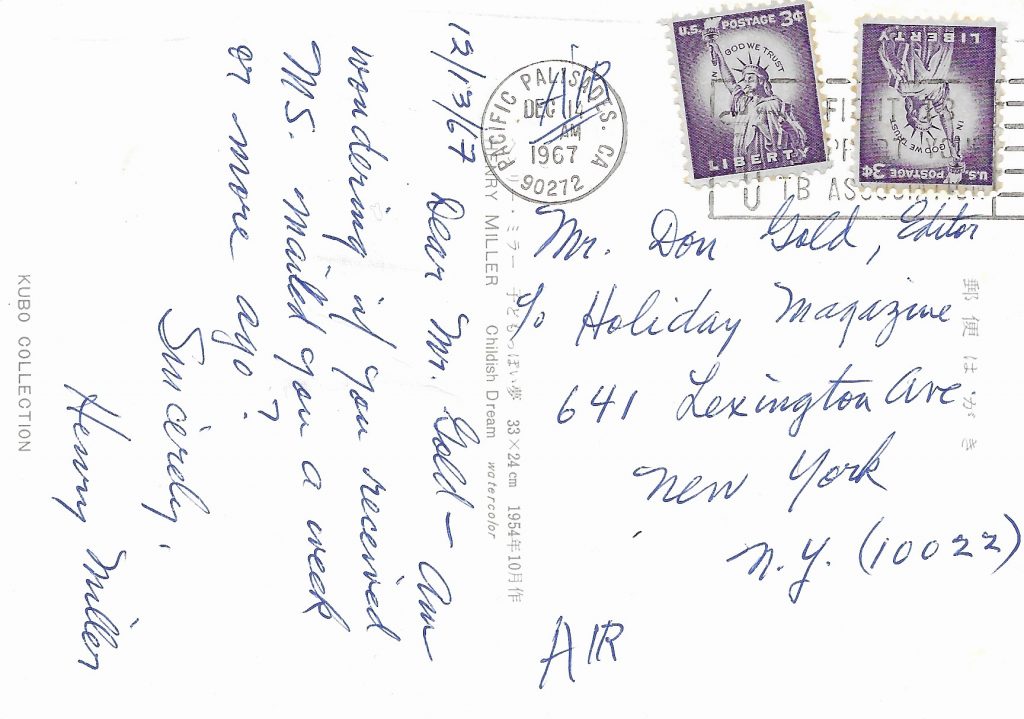 12/13/67 Dear Mr. Gold — Am
wondering if you received
MS. mailed you a week
or more ago?
Sincerely,
Henry Miller
KUBO COLLECTION
リー・ミラー 子どもっぽい夢 33×24cm 1954年10月作
HENRY MILLER Childish Dream watercolor
AIR
PACIFIC PALISADES, CA
DEC 14
AM
1967
90272
U.S. POSTAGE 3¢
IN GOD WE TRUST
LIBERTY
U.S. POSTAGE 3¢
IN GOD WE TRUST
LIBERTY
FIGHT TB
TB ASSOCIATION
郵便はがき
Mr. Don Gold, Editor
c/o Holiday Magazine
641 Lexington Ave
New York
N.Y. (10022)
AIR